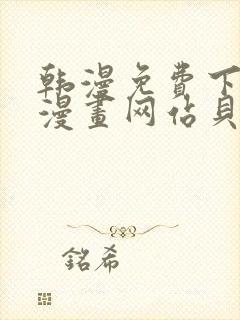 韩漫免費下
漫畫网佔貝
銘希